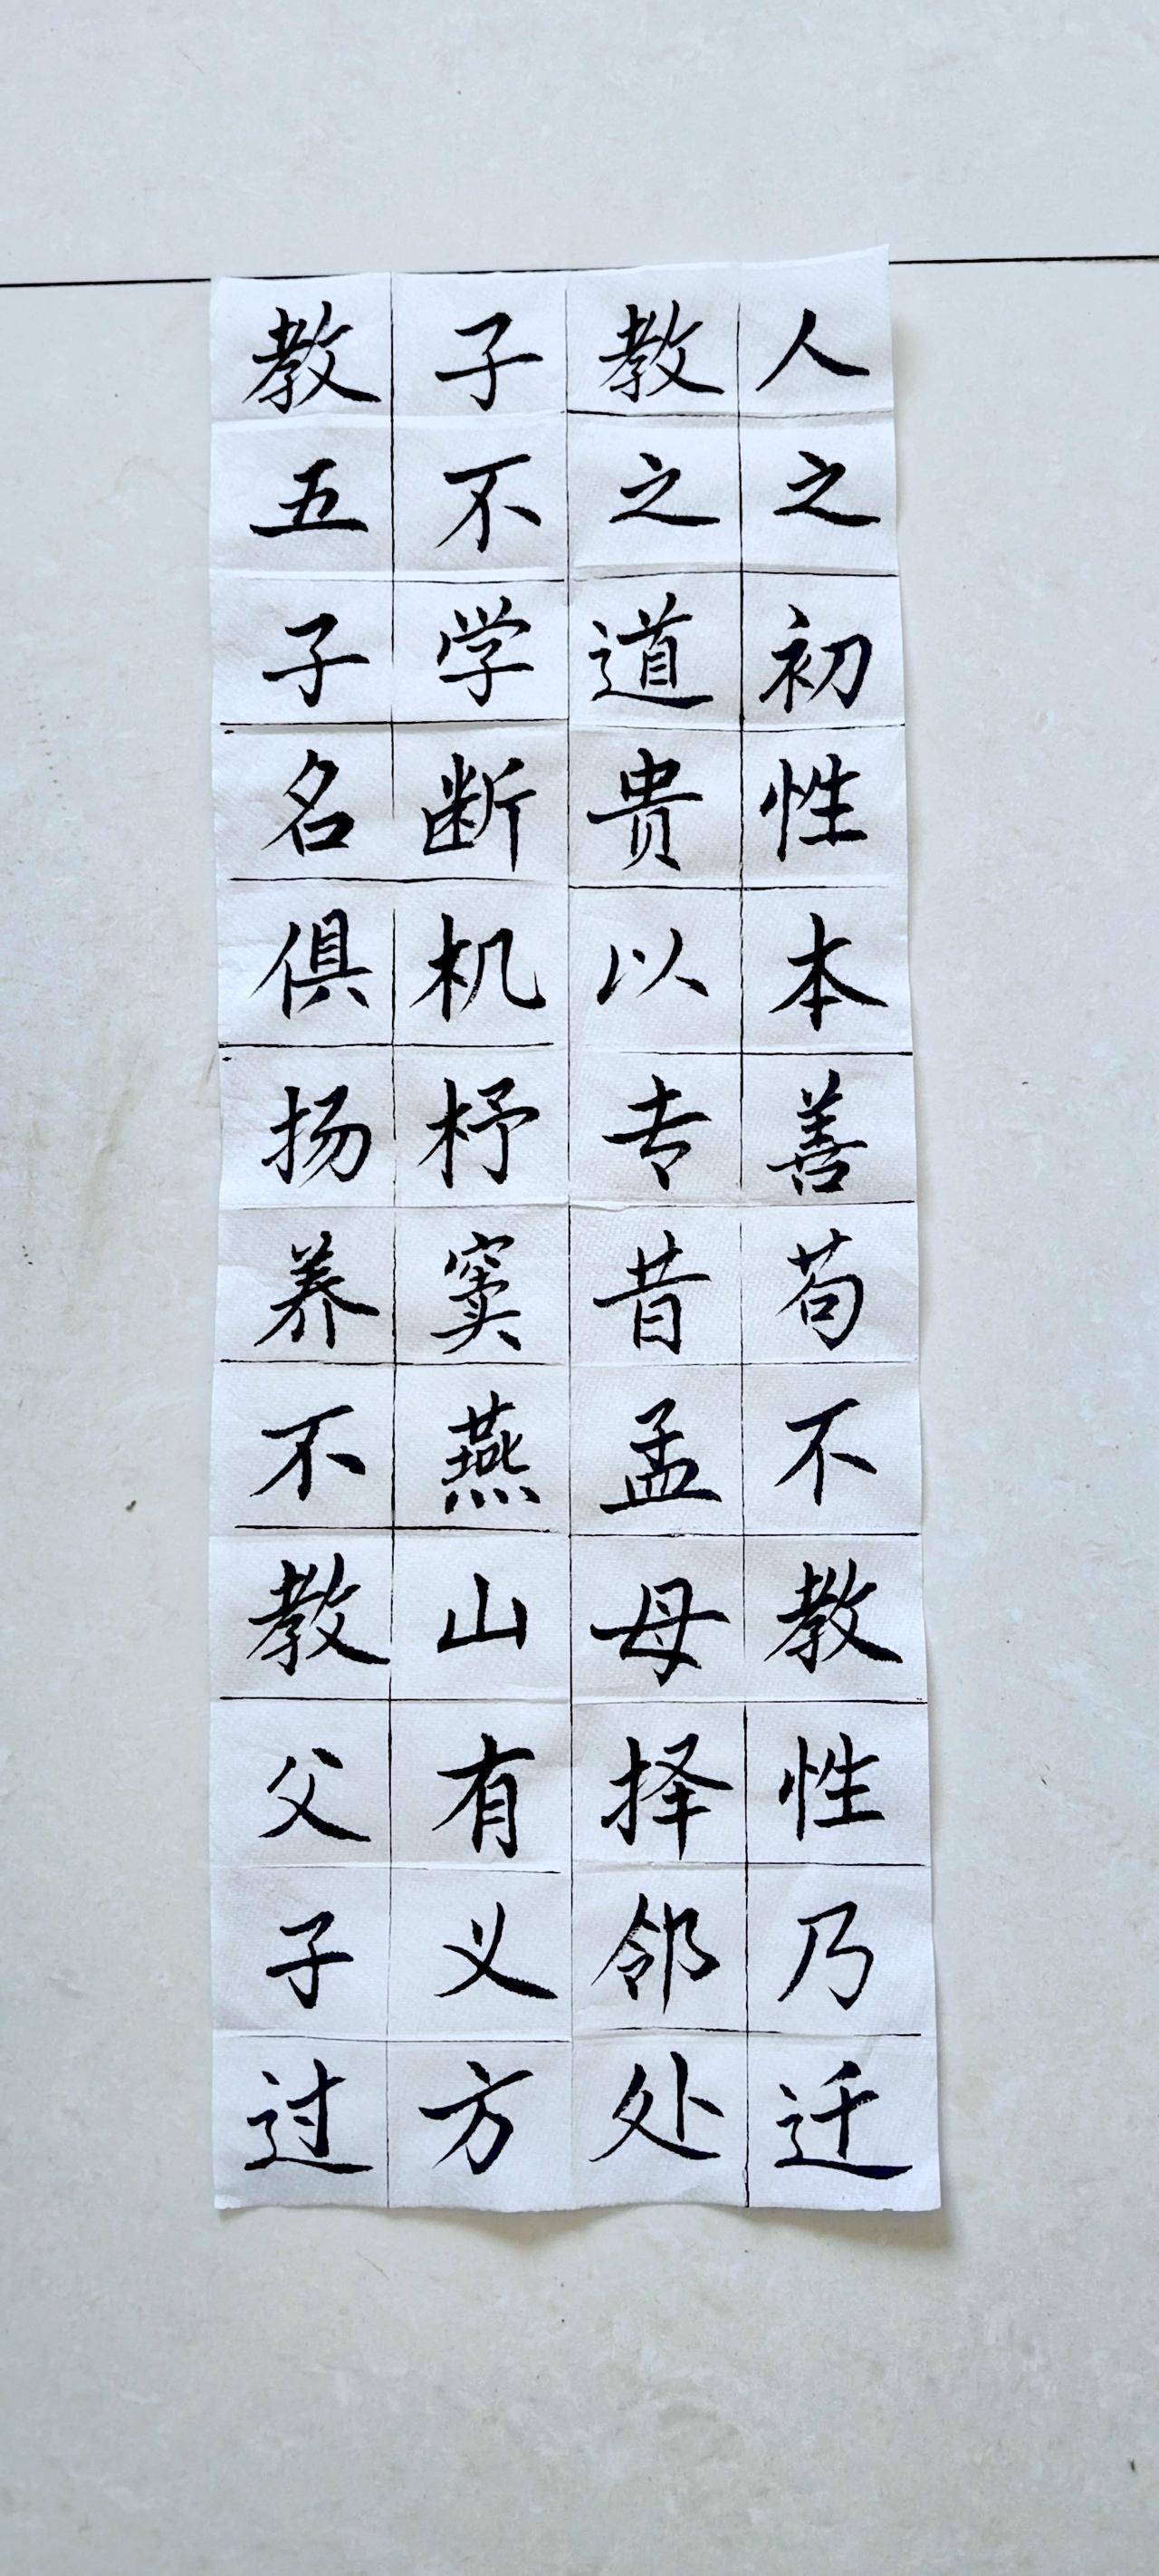 人之初性本善苟不教性乃迁
教之道贵以专昔孟母择邻处
子不学断机杼窦燕山有义方
教五子名俱扬养不教父子过